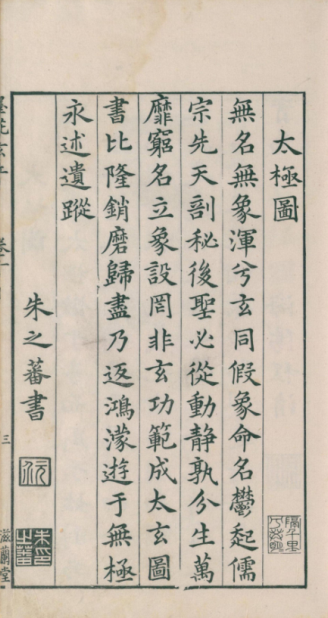 太極圖
無名無象渾兮玄同假象命名鬱起儒
宗先天剖秘後聖必從動靜孰分生萬
靡窮名立象設罔非玄功範成太玄圖
書比隆銷磨歸盡乃返鴻濛遊于無極
永述遺蹤
朱之蕃書
三
滋蘭堂